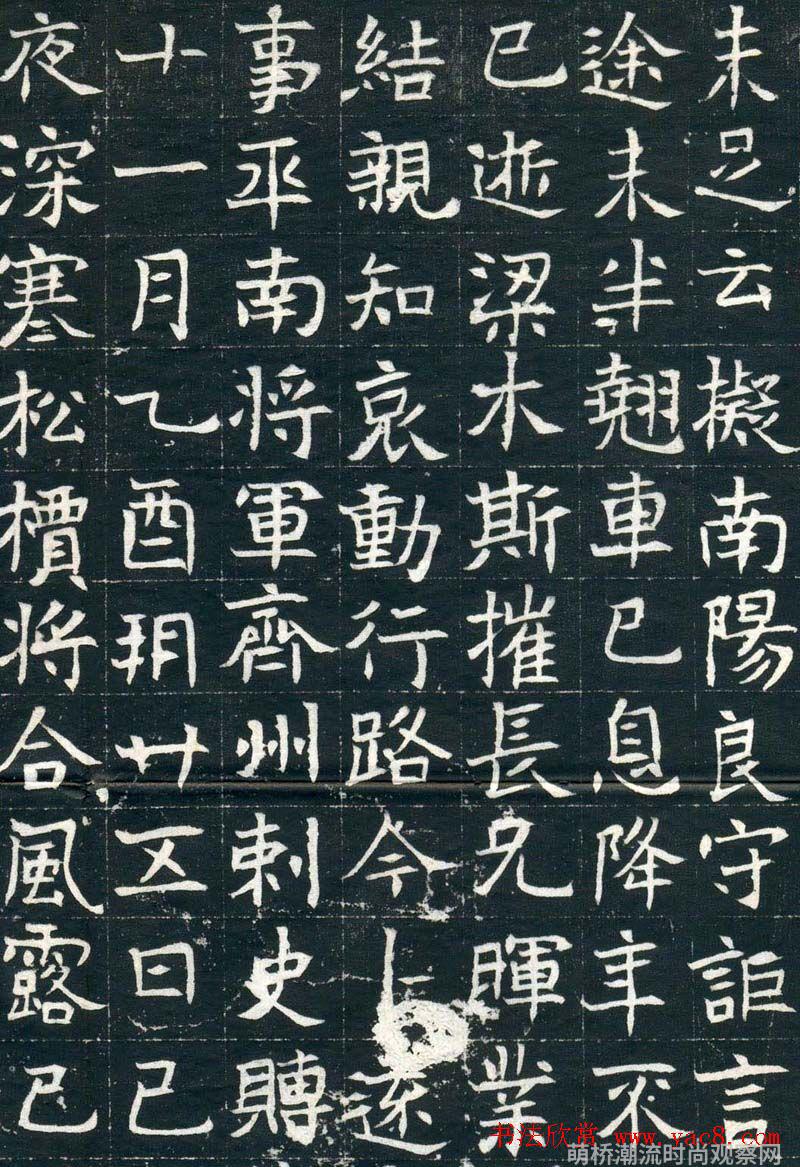 未足云擬南陽良守詎言
途未半翹車已息降年不
已逝梁木斯摧長兄暉業
結親知哀動行路今
事平南将軍齊州刺史賻
十一月乙酉朔廿五日己
夜深寒松檟将合風露已
书法欣赏 www.yac8.com
萌桥潮流时尚观察网